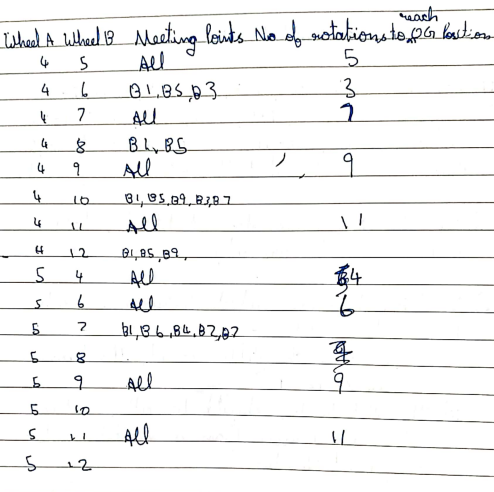 reach
Wheel A Wheel B Meeting Points No of rotations to OG Position
4 5 All 5
4 6 B1, B5, B3 3
4 7 All 7
4 8 B1, B5
4 9 All 9
4 10 B1, B5, B9, B3, B7
4 11 All 11
4 12 B1, B5, B9,
5 4 All 4
5 6 All 6
5 7 B1, B6, B4, B2, B7
5 8
5 9 All 9
5 10
5 11 All 11
5 12